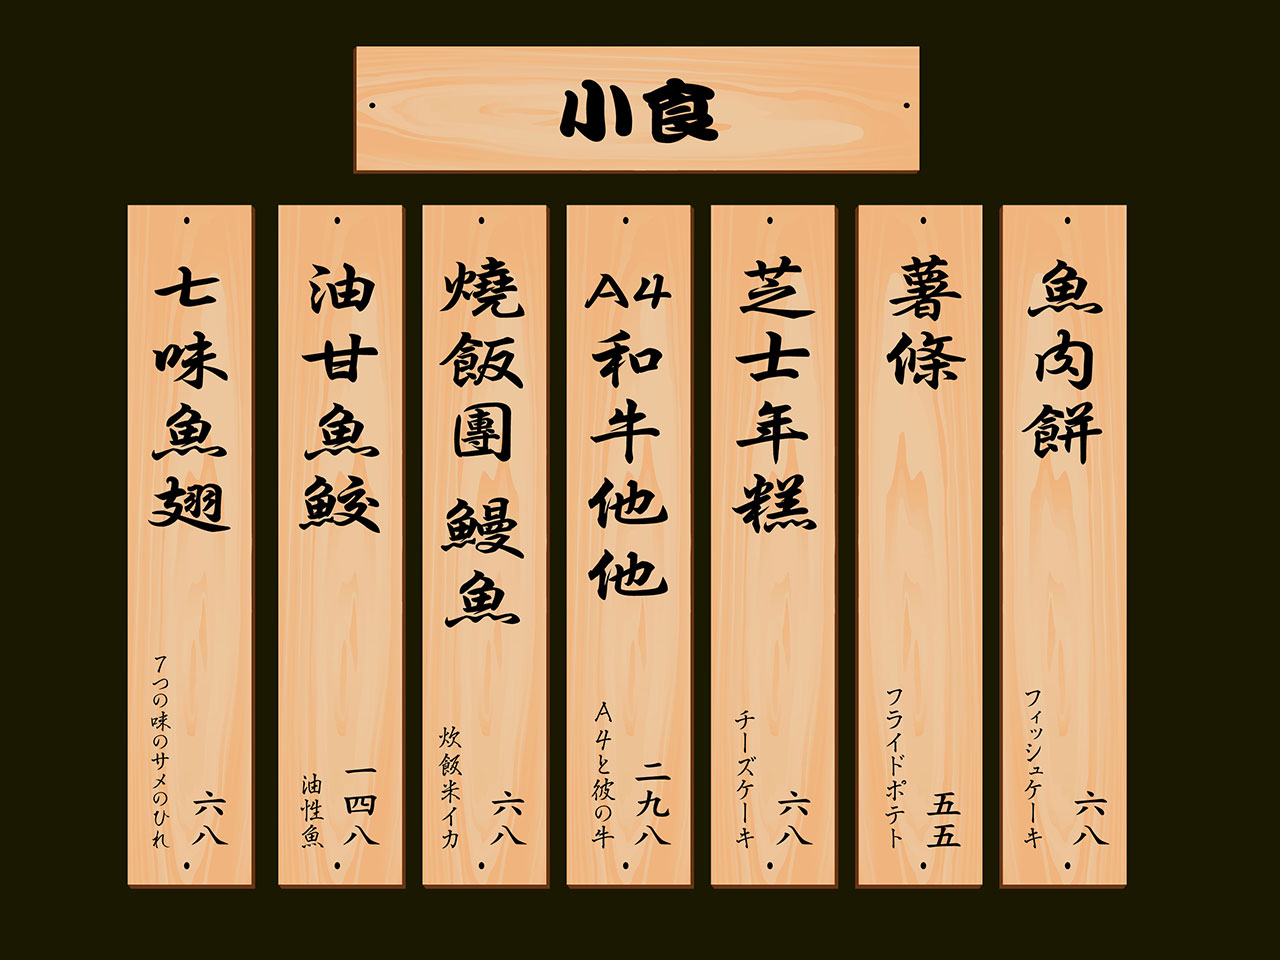 小食
魚肉餅
フィッシュケーキ
六八
薯條
フライドポテト
五五
芝士年糕
チーズケーキ
六八
A4和牛他他
A4と彼の牛
二九八
燒飯團 鰻魚
炊飯米イカ
六八
油甘魚鮫
油性魚
一四八
七味魚翅
7つの味のサメのひれ
六八